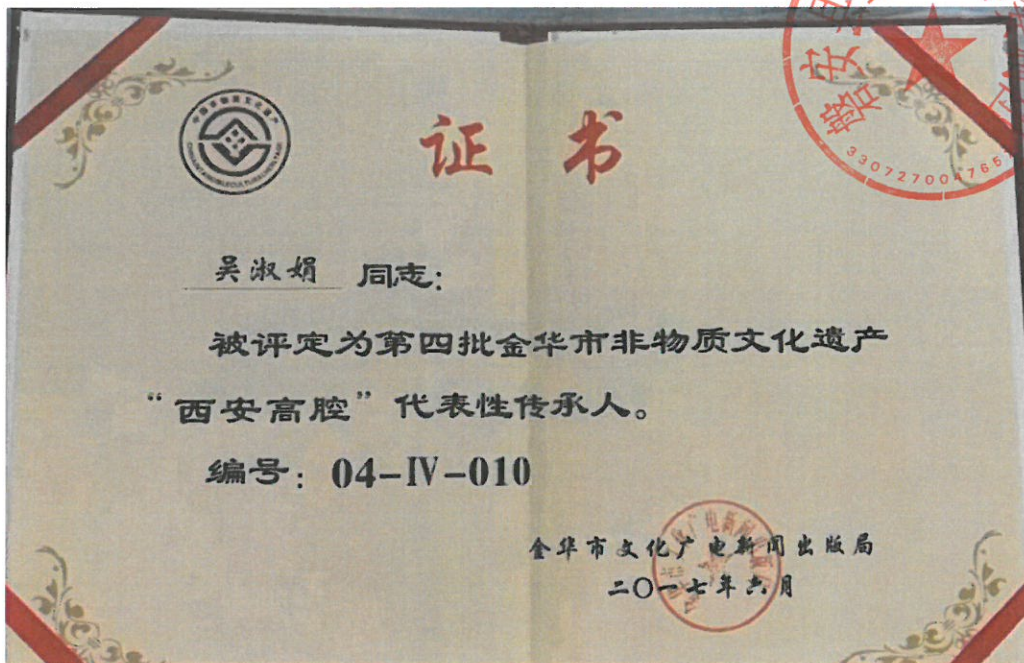 证 书
吴淑娟 同志:
被评定为第四批金华市非物质文化遗产
“西安高腔”代表性传承人。
编号: 04-IV-010
金华市文化广电新闻出版局
二〇一七年六月
中国非物质文化遗产
磐安
3307270047657